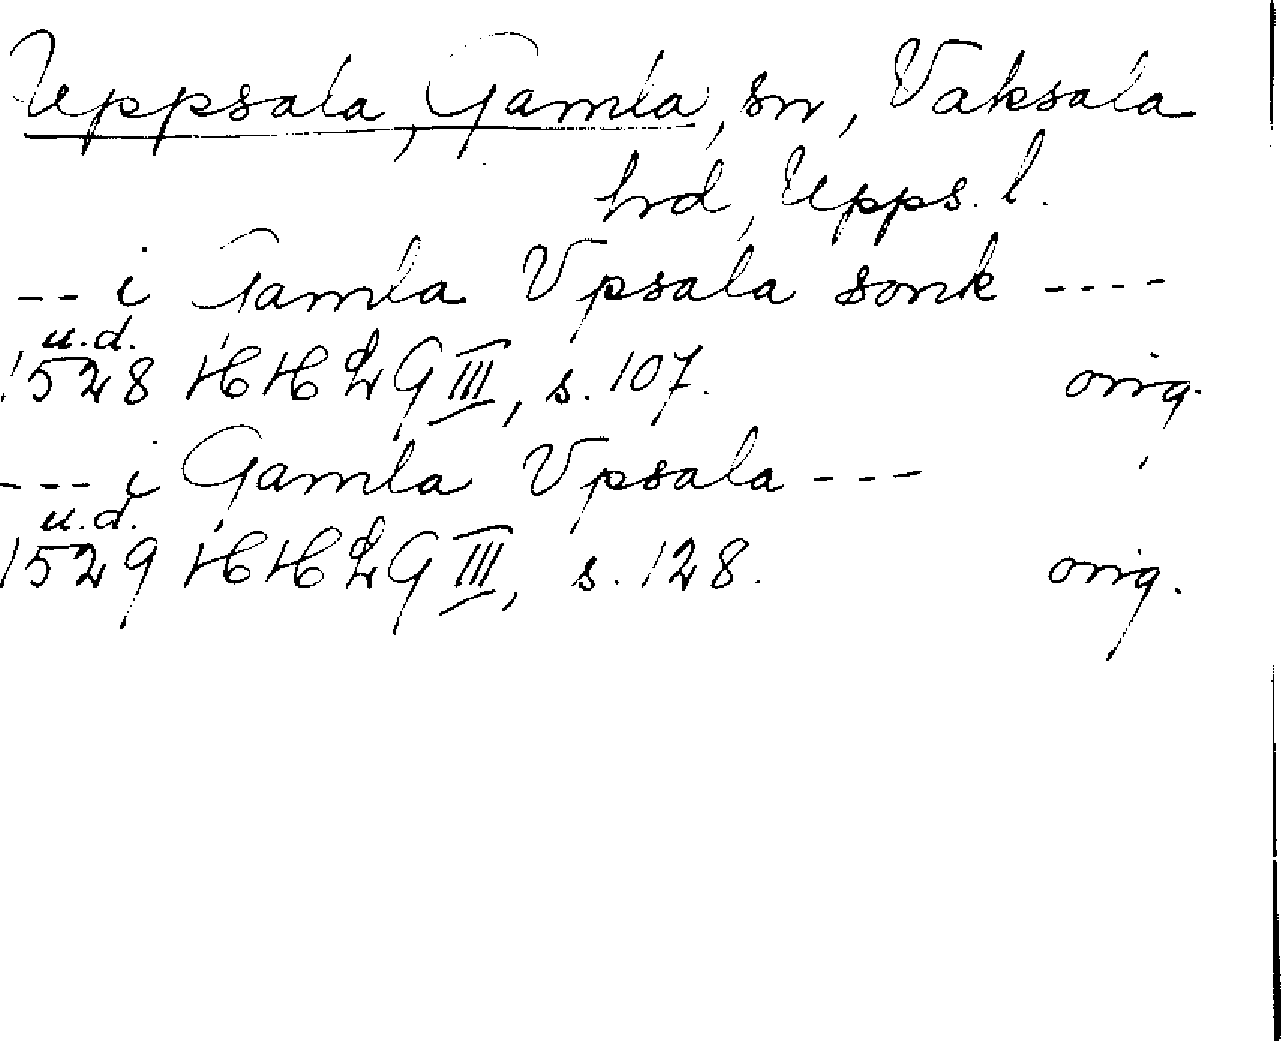 Uppsala, Gamla, sn, Vaksala
hrd, Upps. l.
-- i Gamla Vpsala sonk ----
u.d.
1528 HH 2 G III, s. 107. orig.
--- i Gamla Vpsala ---
u.d.
1529 HH 2 G III, s. 128. orig.